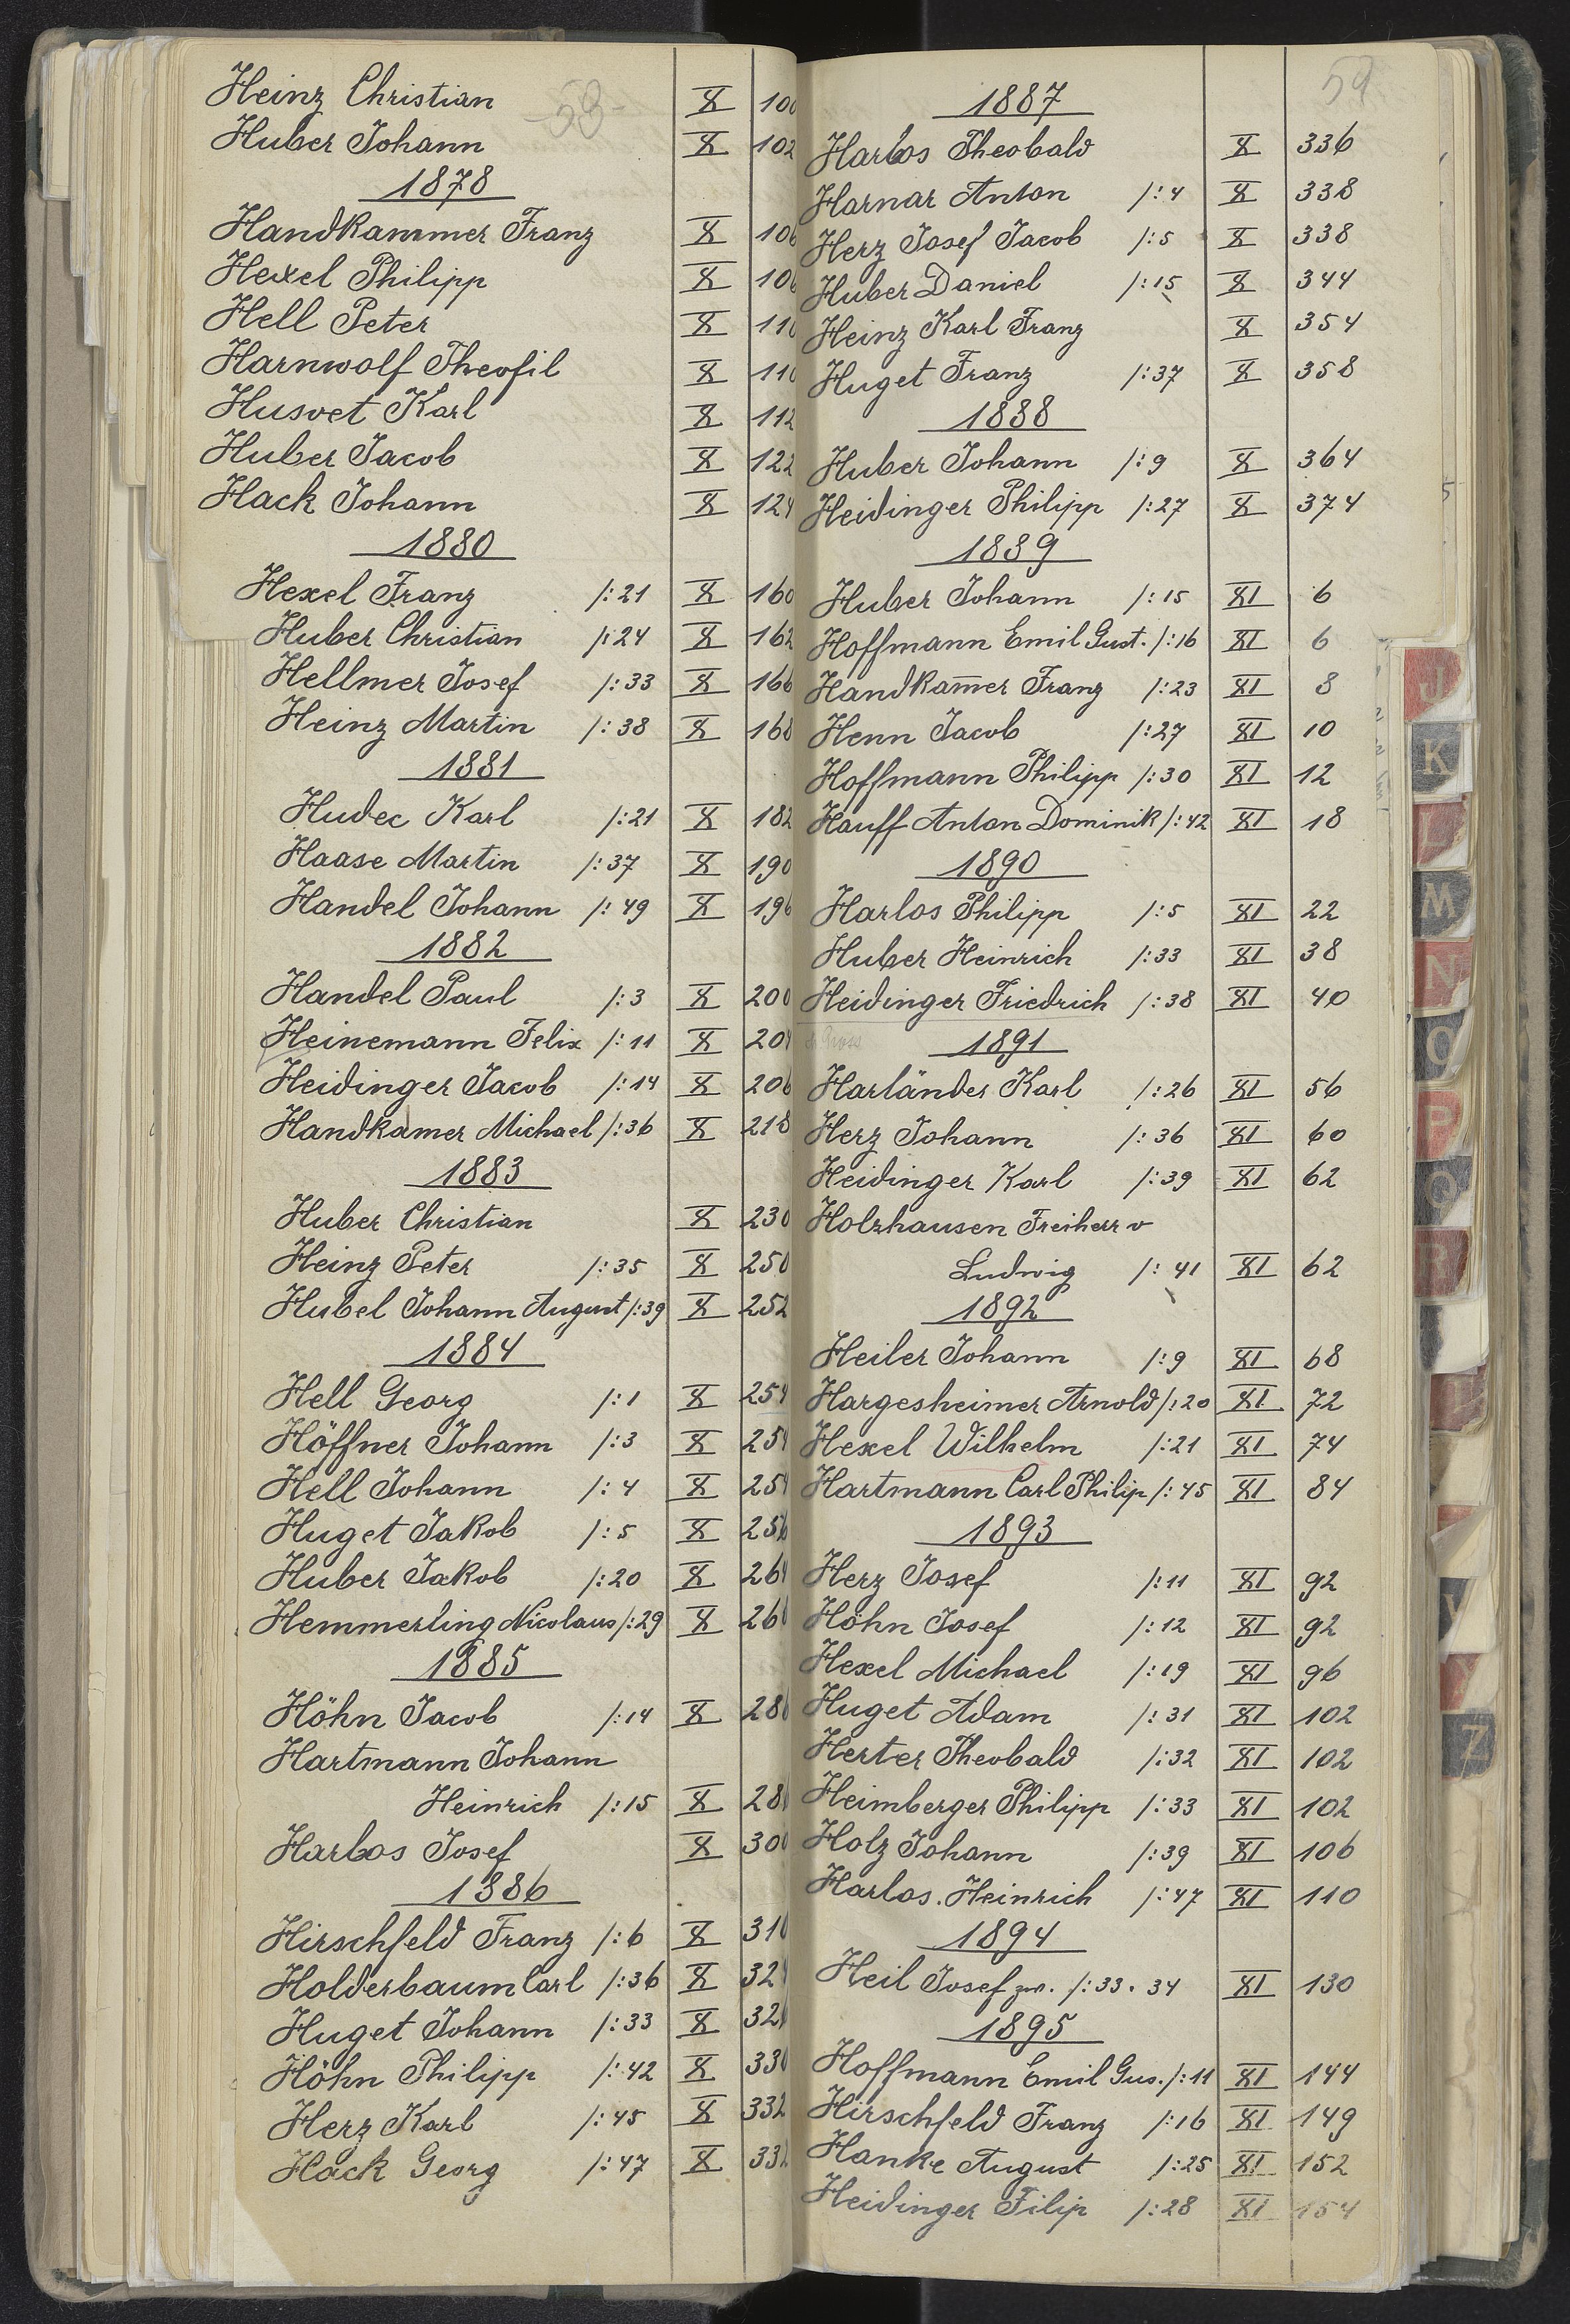 -58-
Heinz Christian X 100
Huber Johann X 102
1878
Handkammer Franz X 106
Hexel Philipp X 106
Hell Peter X 110
Harnwolf Theofil X 110
Husvet Karl X 112
Huber Jacob X 122
Hack Johann X 124
1880
Hexel Franz /:21 X 160
Huber Christian /:24 X 162
Hellmer Josef /:33 X 166
Heinz Martin /:38 X 168
1881
Hudec Karl /:21 X 182
Haase Martin /:37 X 190
Handel Johann /:49 X 196
1882
Handel Paul /:3 X 200
Heinemann Felix /:11 X 204
Heidinger Jacob /:14 X 206
Handkamer Michael /:36 X 218
1883
Huber Christian X 230
Heinz Peter /:35 X 250
Hubel Johann August /:39 X 252
1884
Hell Georg /:1 X 254
Höffner Johann /:3 X 254
Hell Johann /:4 X 254
Huget Jakob /:5 X 256
Huber Jakob /:20 X 264
Hemmerling Nicolaus /:29 X 26
1885
Höhn Jacob /:14 X 28
Hartmann Johann
Heinrich /:15 X 28
Harlos Josef X 300
1886
Hirschfeld Franz /:6 X 310
Holderbaum Carl /:36 X 32
Huget Johann /:33 X 32
Höhn Philipp /:42 X 330
Herz Karl /:45 X 332
Hack Georg /:47 X 33
59
1887
Harlos Theobald X 336
Harnar Anton /:4 X 338
Herz Josef Jacob /:5 X 338
Huber Daniel /:15 X 344
Heinz Karl Franz X 354
Huget Franz /:37 X 358
1888
Huber Johann /:9 X 364
Heidinger Philipp /:27 X 374
1889
Huber Johann /:15 XI 6
Hoffmann Emil Gust. /:16 XI 6
Handkam̄er Franz /:23 XI 8
Henn Jacob /:27 XI 10
Hoffmann Philipp /:30 XI 12
Hauff Anton Dominik /:42 XI 18
1890
Harlos Philipp /:5 XI 22
Huber Heinrich /:33 XI 38
Heidinger Friedrich /:38 XI 40
1891
Harländer Karl /:26 XI 56
Herz Johann /:36 XI 60
Heidinger Karl /:39 XI 62
Holzhausen Freiherr v
Ludwig /:41 XI 62
1892
Heiler Johann /:9 XI 68
Hargesheimer Arnold /:20 XI 72
Hexel Wilhelm /:21 XI 74
Hartmann Carl Philip /:45 XI 84
1893
Herz Josef /:11 XI 92
Höhn Josef /:12 XI 92
Hexel Michael /:19 XI 96
Huget Adam /:31 XI 102
Herter Theobald /:32 XI 102
Heimberger Philipp /:33 XI 102
Holz Johann /:39 XI 106
Harlos. Heinrich /:47 XI 110
1894
Heil Josef zw. /:33. 34 XI 130
1895
Hoffmann Emil Gus. /:11 XI 144
Hirschfeld Franz /:16 XI 149
Hanke August /:25 XI 152
Heidinger Filip /:28 XI 154
J
K
L
M
N
O
P
Q
R
V
Z